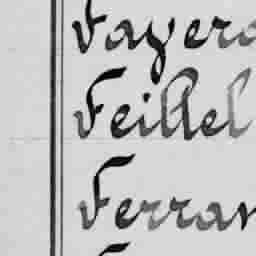 Fayero
Feillel
Ferran